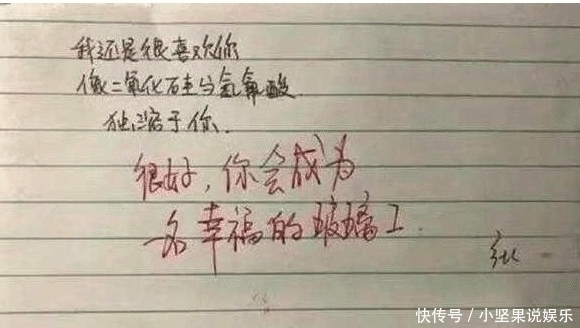 我还是很喜欢你
像二氧化硅与氢氟酸
独溶于你.
很好,你会成为
一名幸福的玻璃工.
快传号/小坚果说娱乐